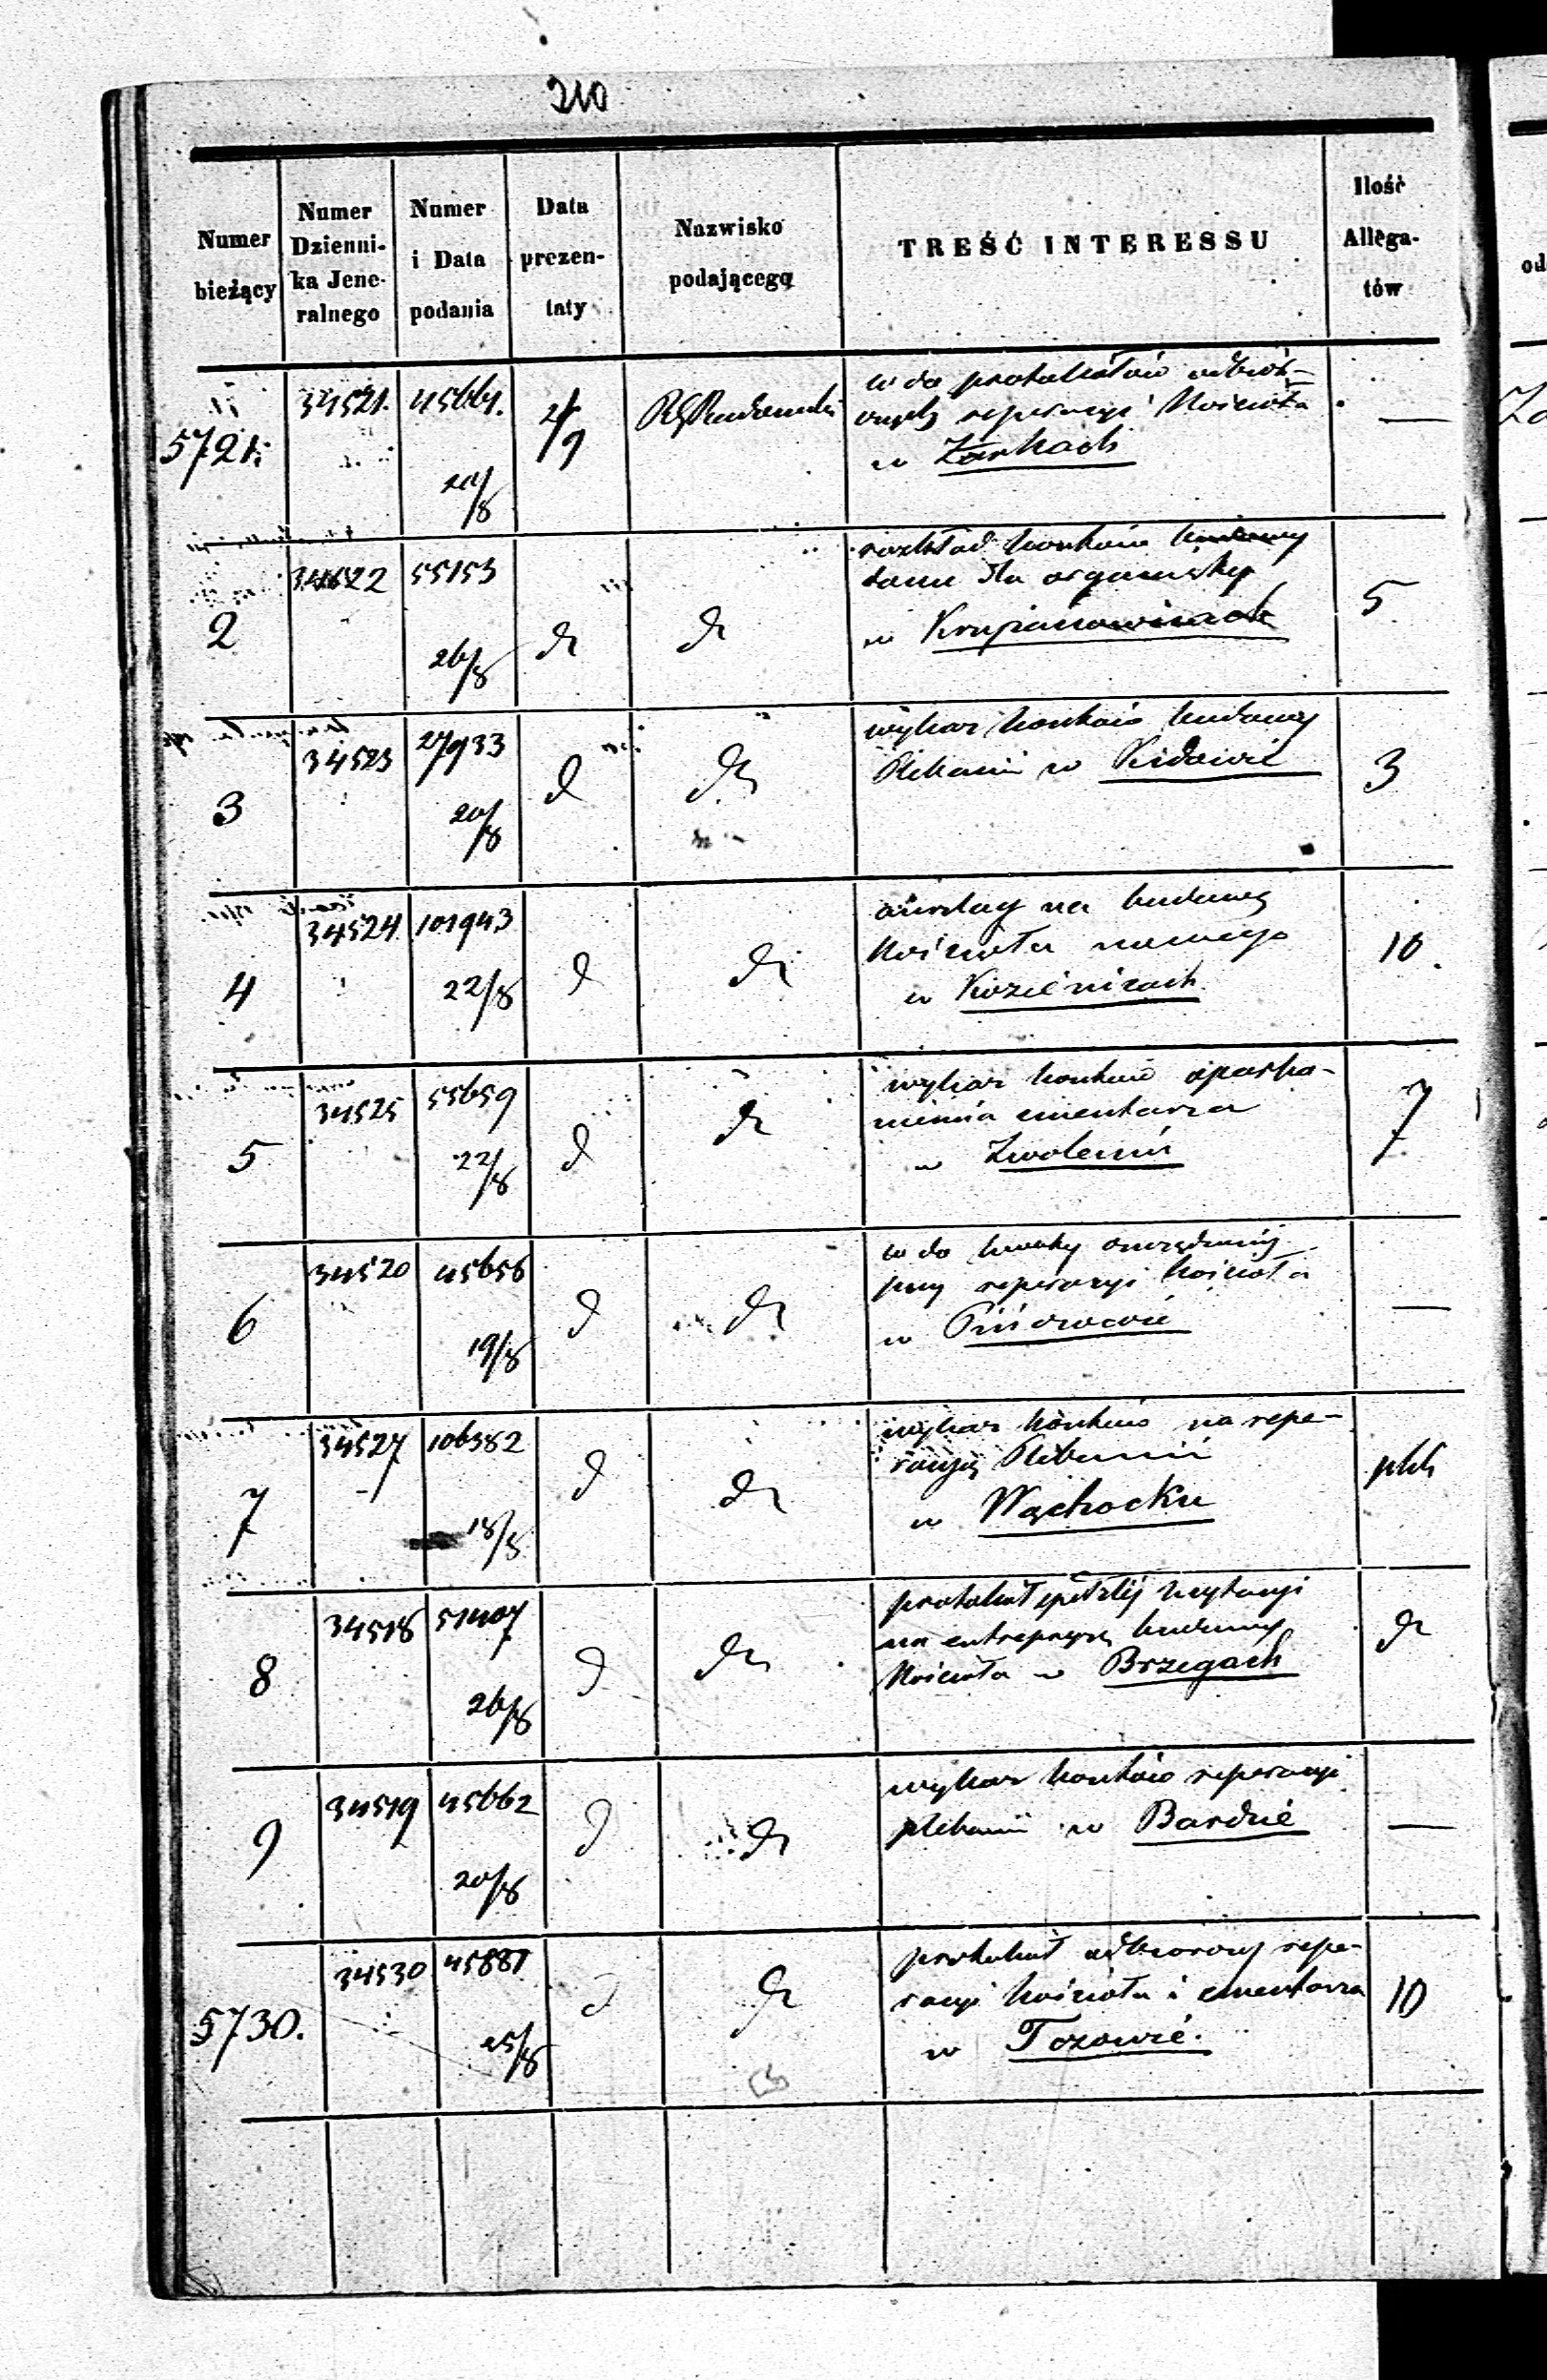 210
Numer bieżący | Numer Dzienni-ka Jene-ralnego | Numer i Data podania | Data prezen-taty | Nazwisko podającego | TREŚĆ INTERESSU | Ilość Allega-tów
5721. | 34521. | 45664. 20/8 | 4/9 | RG Radomski | w do protokółów odbior-
onych reperacyi Kościoła
w Żarkach | —
2 | 34522 | 55153 26/8 | dt | dt | rozkład kosztów budowy
domu dla organisty
w Krzyżanowicach | 5
3 | 34523 | 27933 20/8 | d | dt | wykaz kosztów budowy
Plebanii w Kidowie | 3
4 | 34524 | 101943 22/8 | d | dt | anszlag na budowę
Kościoła nowego
w Kozienicach | 10.
5 | 34525 | 55659 22/8 | d | dt | wykaz kosztów oparka-
nienia cmentarza
w Zwoleniu | 7
6 | 34520 | 45658 19/8 | d | dt | w do
przy reperacyi Kościoła
w | —
7 | 34527 | 106382 18/8 | d | dt | wykaz kosztów na repe-
racyę Plebanii
w Wąchocku | plik
8 | 34518 | 51407 26/8 | d | dt | protokół spełzłej licytacyi
na entrepryzę budowy
Kościoła w Brzegach | dt
9 | 34519 | 45662 20/8 | d | dt | wykaz kosztów reperacyi
plebanii w Bardzie | —
5730. | 34530 | 45881 25/8 | d | dt | protokół odbiorowy repe-
racyi kościoła i cmentarza
w Tczowie. | 10
od